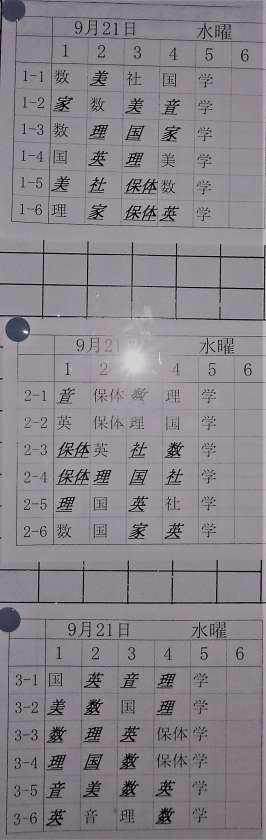 9月21日 水曜
1 2 3 4 5 6
1-1 数 美 社 国 学
1-2 家 数 美 音 学
1-3 数 理 国 家 学
1-4 国 英 理 美 学
1-5 美 社 保体 数 学
1-6 理 家 保体 英 学
9月21日 水曜
1 2 4 5 6
2-1 音 保体 数 理 学
2-2 英 保体 理 国 学
2-3 保体 英 社 数 学
2-4 保体 理 国 社 学
2-5 理 国 英 社 学
2-6 数 国 家 英 学
9月21日 水曜
1 2 3 4 5 6
3-1 国 英 音 理 学
3-2 美 数 国 理 学
3-3 数 理 英 保体 学
3-4 理 国 数 保体 学
3-5 音 美 数 英 学
3-6 英 音 理 数 学